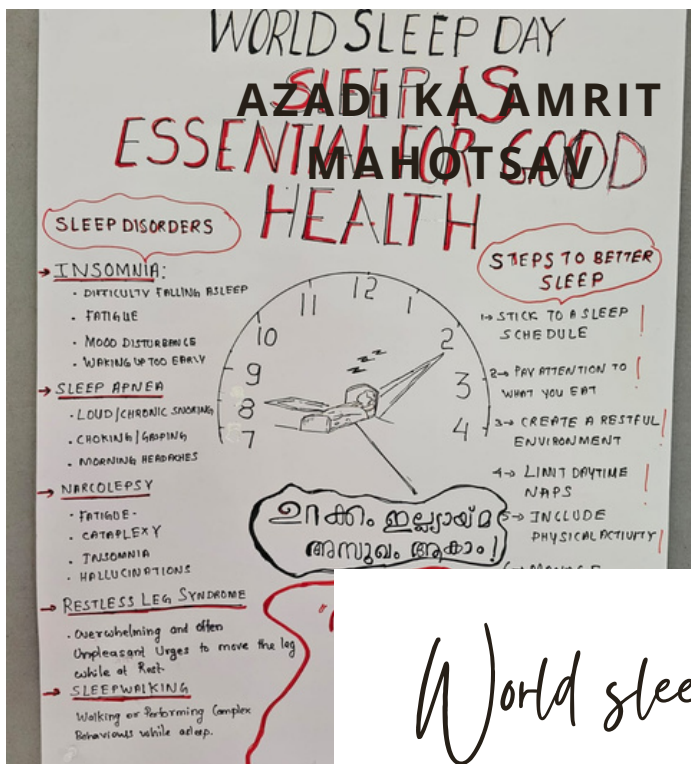 WORLD SLEEP DAY
AZADI KA AMRIT
MAHOTSAV
SLEEP IS
ESSENTIAL FOR GOOD
HEALTH
SLEEP DISORDERS
→ INSOMNIA:
· DIFFICULTY FALLING ASLEEP
· FATIGUE
· MOOD DISTURBANCE
· WAKING UP TOO EARLY
→ SLEEP APNEA
· LOUD/CHRONIC SNORING
· CHOKING/GASPING
· MORNING HEADACHES
→ NARCOLEPSY
· FATIGUE-
· CATAPLEXY
· INSOMNIA
· HALLUCINATIONS
→ RESTLESS LEG SYNDROME
· Overwhelming and often
Unpleasant Urges to move the leg
while at Rest.
→ SLEEPWALKING
Walking or Performing Complex
Behaviours while asleep.
12
11
1
10
2
9
3
8
4
7
z z z
ഉറക്കം ഇല്ലായ്മ
അസുഖം ആകാം!
STEPS TO BETTER
SLEEP
1→ STICK TO A SLEEP
SCHEDULE
2→ PAY ATTENTION TO
WHAT YOU EAT
3→ CREATE A RESTFUL
ENVIRONMENT
4→ LIMIT DAYTIME
NAPS
5→ INCLUDE
PHYSICAL ACTIVITY
World slee